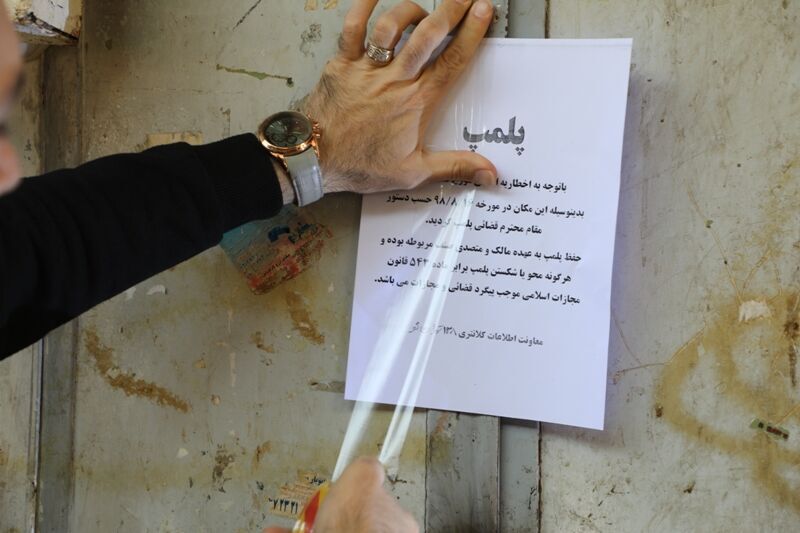 پلمپ
باتوجه به اخطاریه
بدینوسیله این مکان در مورخه ۹۸/۸ حسب دستور
مقام محترم قضائی پلمپ گردید.
حفظ پلمپ به عهده مالک و متصدی مربوطه بوده و
هرگونه محو یا شکستن پلمپ برابر ماده ۵۴۳ قانون
مجازات اسلامی موجب پیگرد قضائی و مجازات می باشد.
معاونت اطلاعات کلانتری ۱۳۸